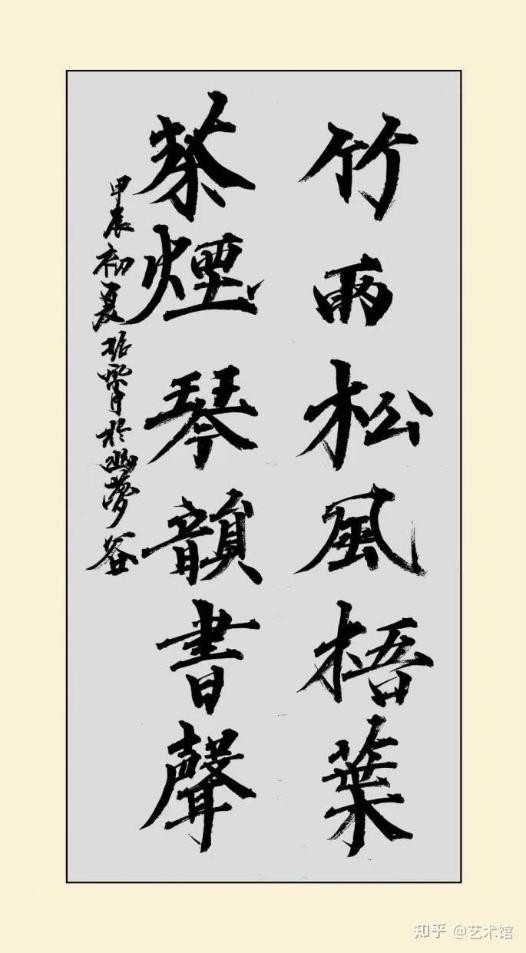 竹雨松風梧葉
茶煙琴韻書聲
甲辰初夏振霄於幽夢谷
知乎 @艺术馆